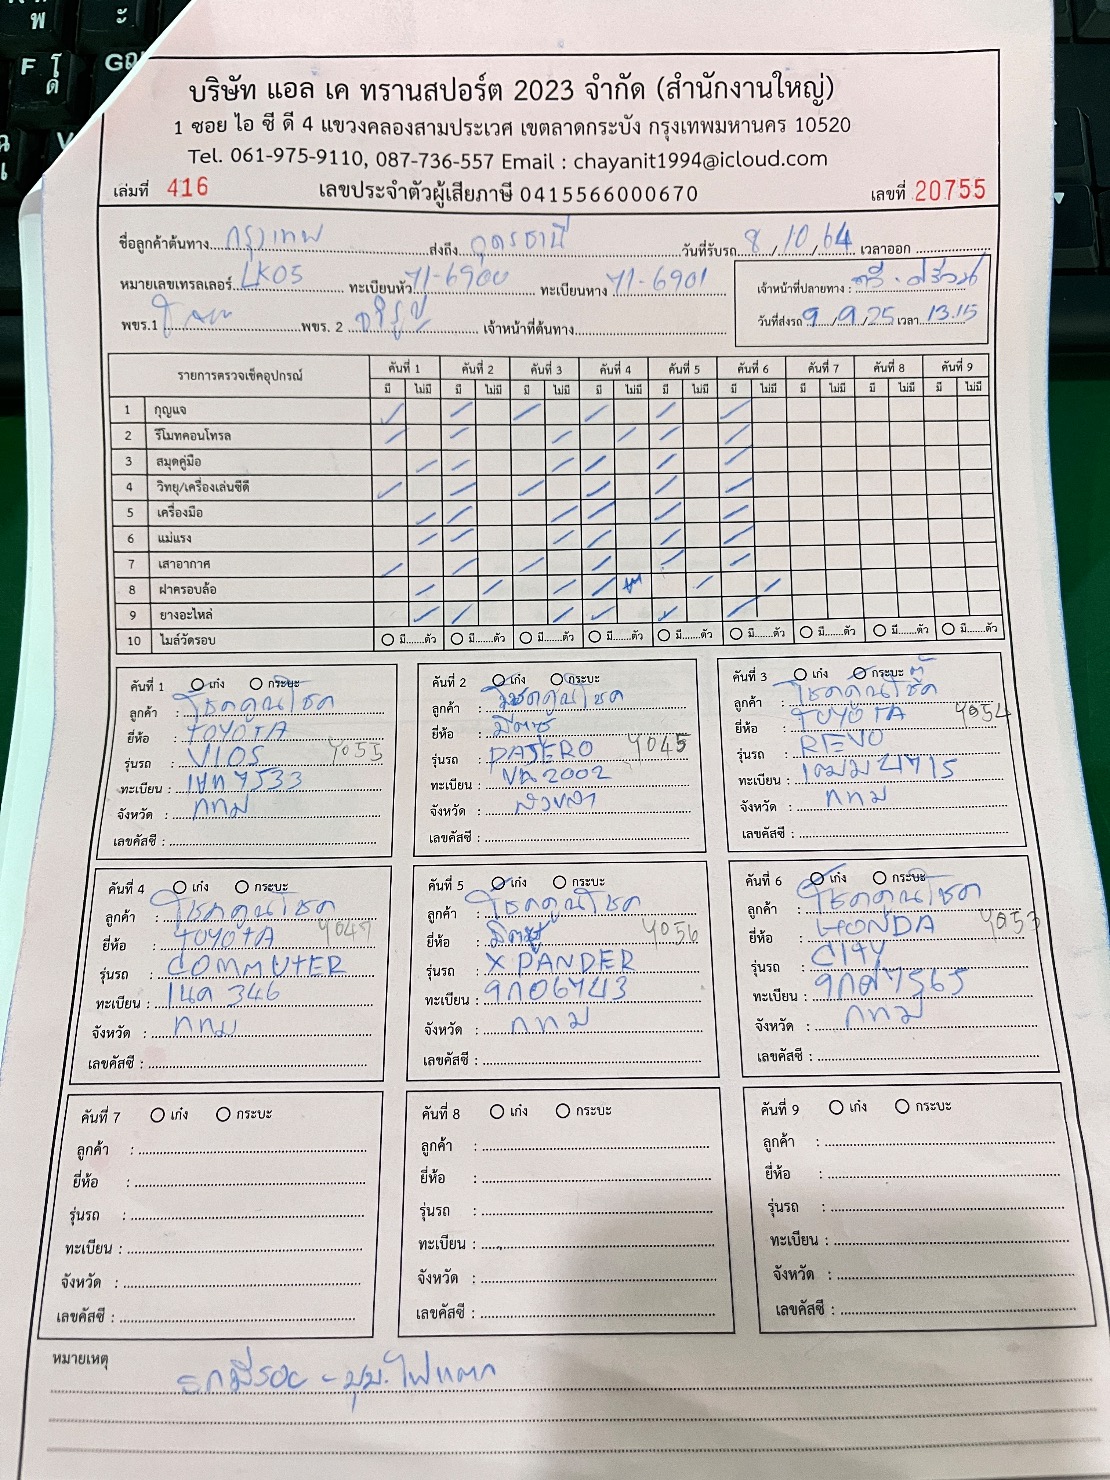 บริษัท แอล เค ทรานสปอร์ต 2023 จำกัด (สำนักงานใหญ่)
1 ซอย ไอ ซี ดี 4 แขวงคลองสามประเวศ เขตลาดกระบัง กรุงเทพมหานคร 10520
Tel. 061-975-9110, 087-736-557 Email : chayanit1994@icloud.com
เล่มที่ 416 เลขประจำตัวผู้เสียภาษี 0415566000670 เลขที่ 20755
ชื่อลูกค้าต้นทาง กรุงเทพ ส่งถึง อุดรธานี วันที่รับรถ 8/10/64 เวลาออก
หมายเลขเทรลเลอร์ LK05 ทะเบียนหัว 71-6900 ทะเบียนหาง 71-6901 เจ้าหน้าที่ปลายทาง :
พขร.1 พขร. 2 เจ้าหน้าที่ต้นทาง วันที่ส่งรถ 9/9/25 เวลา 13.15
รายการตรวจเช็คอุปกรณ์ คันที่ 1 คันที่ 2 คันที่ 3 คันที่ 4 คันที่ 5 คันที่ 6 คันที่ 7 คันที่ 8 คันที่ 9
มี ไม่มี มี ไม่มี มี ไม่มี มี ไม่มี มี ไม่มี มี ไม่มี มี ไม่มี มี ไม่มี มี ไม่มี
1 กุญแจ
2 รีโมทคอนโทรล
3 สมุดคู่มือ
4 วิทยุ/เครื่องเล่นซีดี
5 เครื่องมือ
6 แม่แรง
7 เสาอากาศ
8 ฝาครอบล้อ
9 ยางอะไหล่
10 ไมล์วัดรอบ มี......ตัว มี......ตัว มี......ตัว มี......ตัว มี......ตัว มี......ตัว มี......ตัว มี......ตัว มี......ตัว
คันที่ 1 เก๋ง กระบะ
ลูกค้า : โชคคูณโชค
ยี่ห้อ : TOYOTA
รุ่นรถ : VIOS 4055
ทะเบียน : 7533
จังหวัด : กทม
เลขคัสซี :
คันที่ 2 เก๋ง กระบะ
ลูกค้า : โชคคูณโชค
ยี่ห้อ : มิตซู
รุ่นรถ : PAJERO 4045
ทะเบียน : 2002
จังหวัด : สงขลา
เลขคัสซี :
คันที่ 3 เก๋ง กระบะ
ลูกค้า : โชคคูณโชค
ยี่ห้อ : TOYOTA 4054
รุ่นรถ : REVO
ทะเบียน :
จังหวัด : กทม
เลขคัสซี :
คันที่ 4 เก๋ง กระบะ
ลูกค้า : โชคคูณโชค
ยี่ห้อ : TOYOTA
รุ่นรถ : COMMUTER
ทะเบียน : 346
จังหวัด : กทม
เลขคัสซี :
คันที่ 5 เก๋ง กระบะ
ลูกค้า : โชคคูณโชค
ยี่ห้อ : มิตซู 4056
รุ่นรถ : XPANDER
ทะเบียน : 9กอ6743
จังหวัด : กทม
เลขคัสซี :
คันที่ 6 เก๋ง กระบะ
ลูกค้า : โชคคูณโชค
ยี่ห้อ : HONDA 4053
รุ่นรถ : CITY
ทะเบียน : 7565
จังหวัด : กทม
เลขคัสซี :
คันที่ 7 เก๋ง กระบะ
ลูกค้า :
ยี่ห้อ :
รุ่นรถ :
ทะเบียน :
จังหวัด :
เลขคัสซี :
คันที่ 8 เก๋ง กระบะ
ลูกค้า :
ยี่ห้อ :
รุ่นรถ :
ทะเบียน :
จังหวัด :
เลขคัสซี :
คันที่ 9 เก๋ง กระบะ
ลูกค้า :
ยี่ห้อ :
รุ่นรถ :
ทะเบียน :
จังหวัด :
เลขคัสซี :
หมายเหตุ
รถมีรอย - มุมไฟแตก